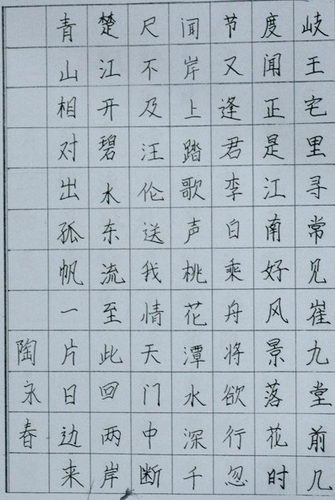 岐王宅里寻常见崔九堂前几
度闻正是江南常好风景落花时
节又逢君李白乘舟将欲行忽
闻岸上踏歌声桃花潭水深千
尺不及汪伦送我情天门中断
楚江开碧水东流至此回两岸
青山相对出孤帆一片日边来
陶永春